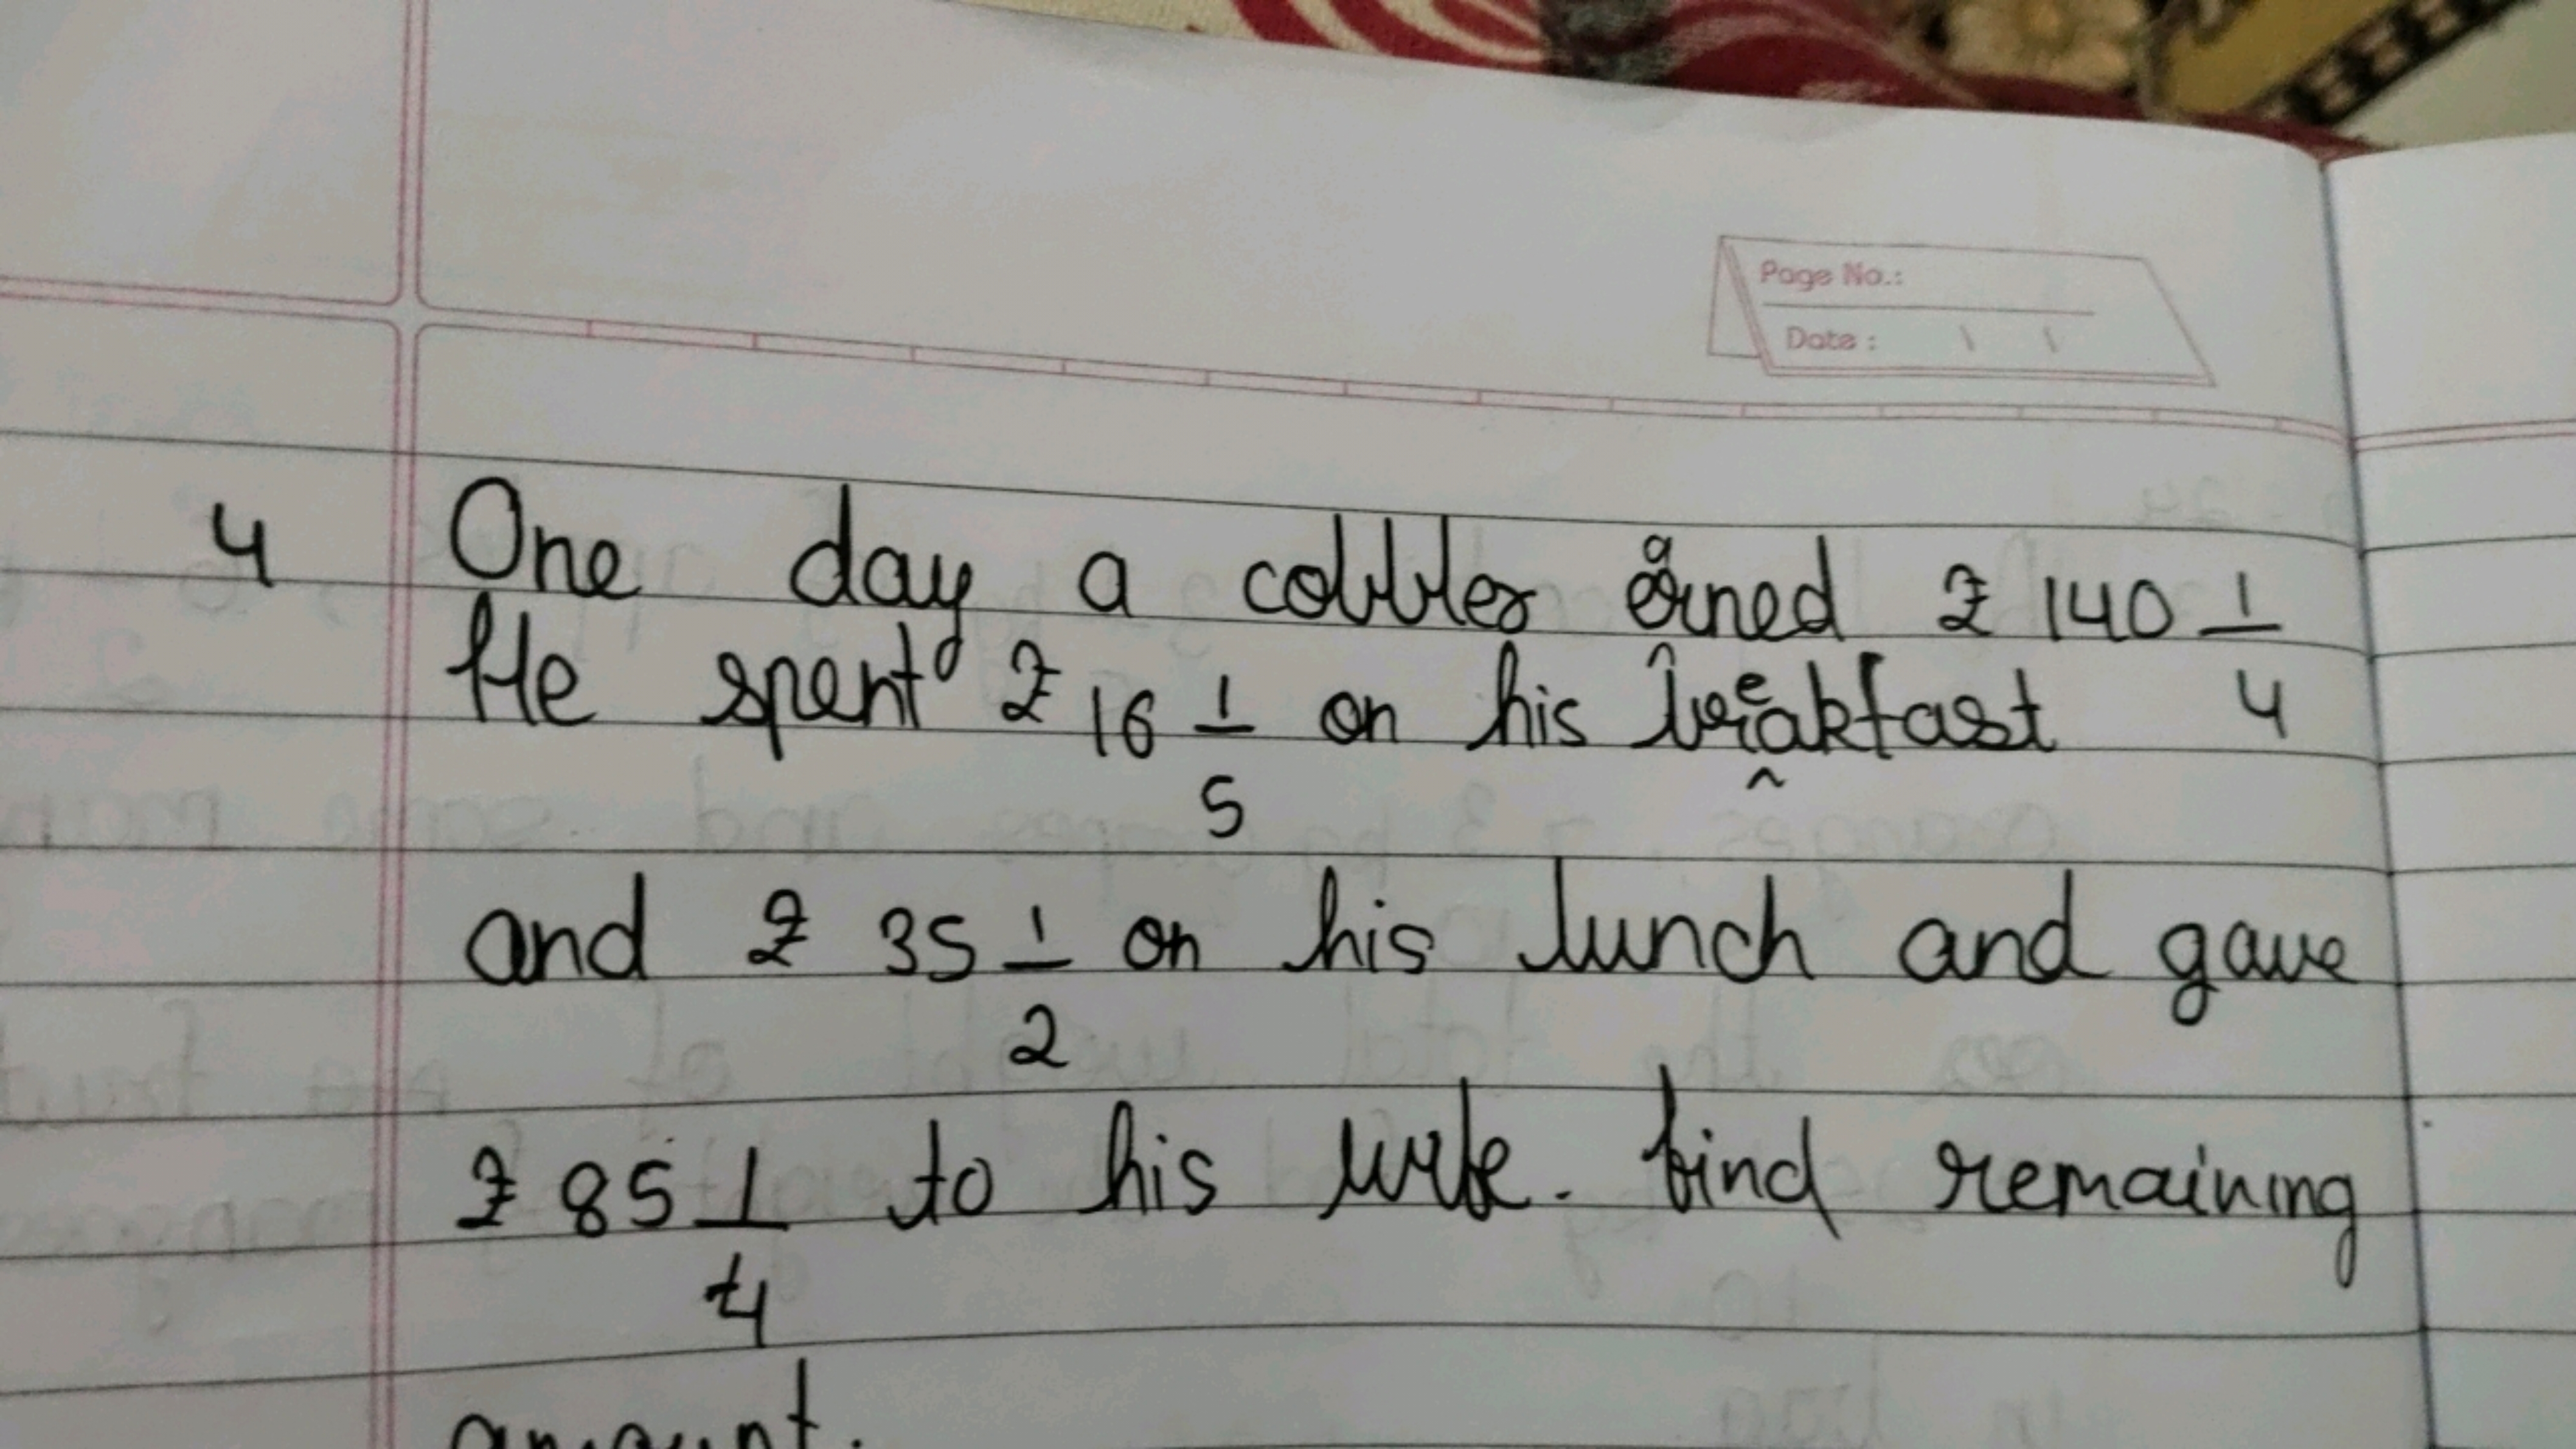 Page No.:
Date :
4 One day a cobbler earned ₹ 140 1/4
He spent ₹ 16 1/5 on his breakfast
and ₹ 35 1/2 on his lunch and gave
₹ 85 1/4 to his wife. find remaining
amount.